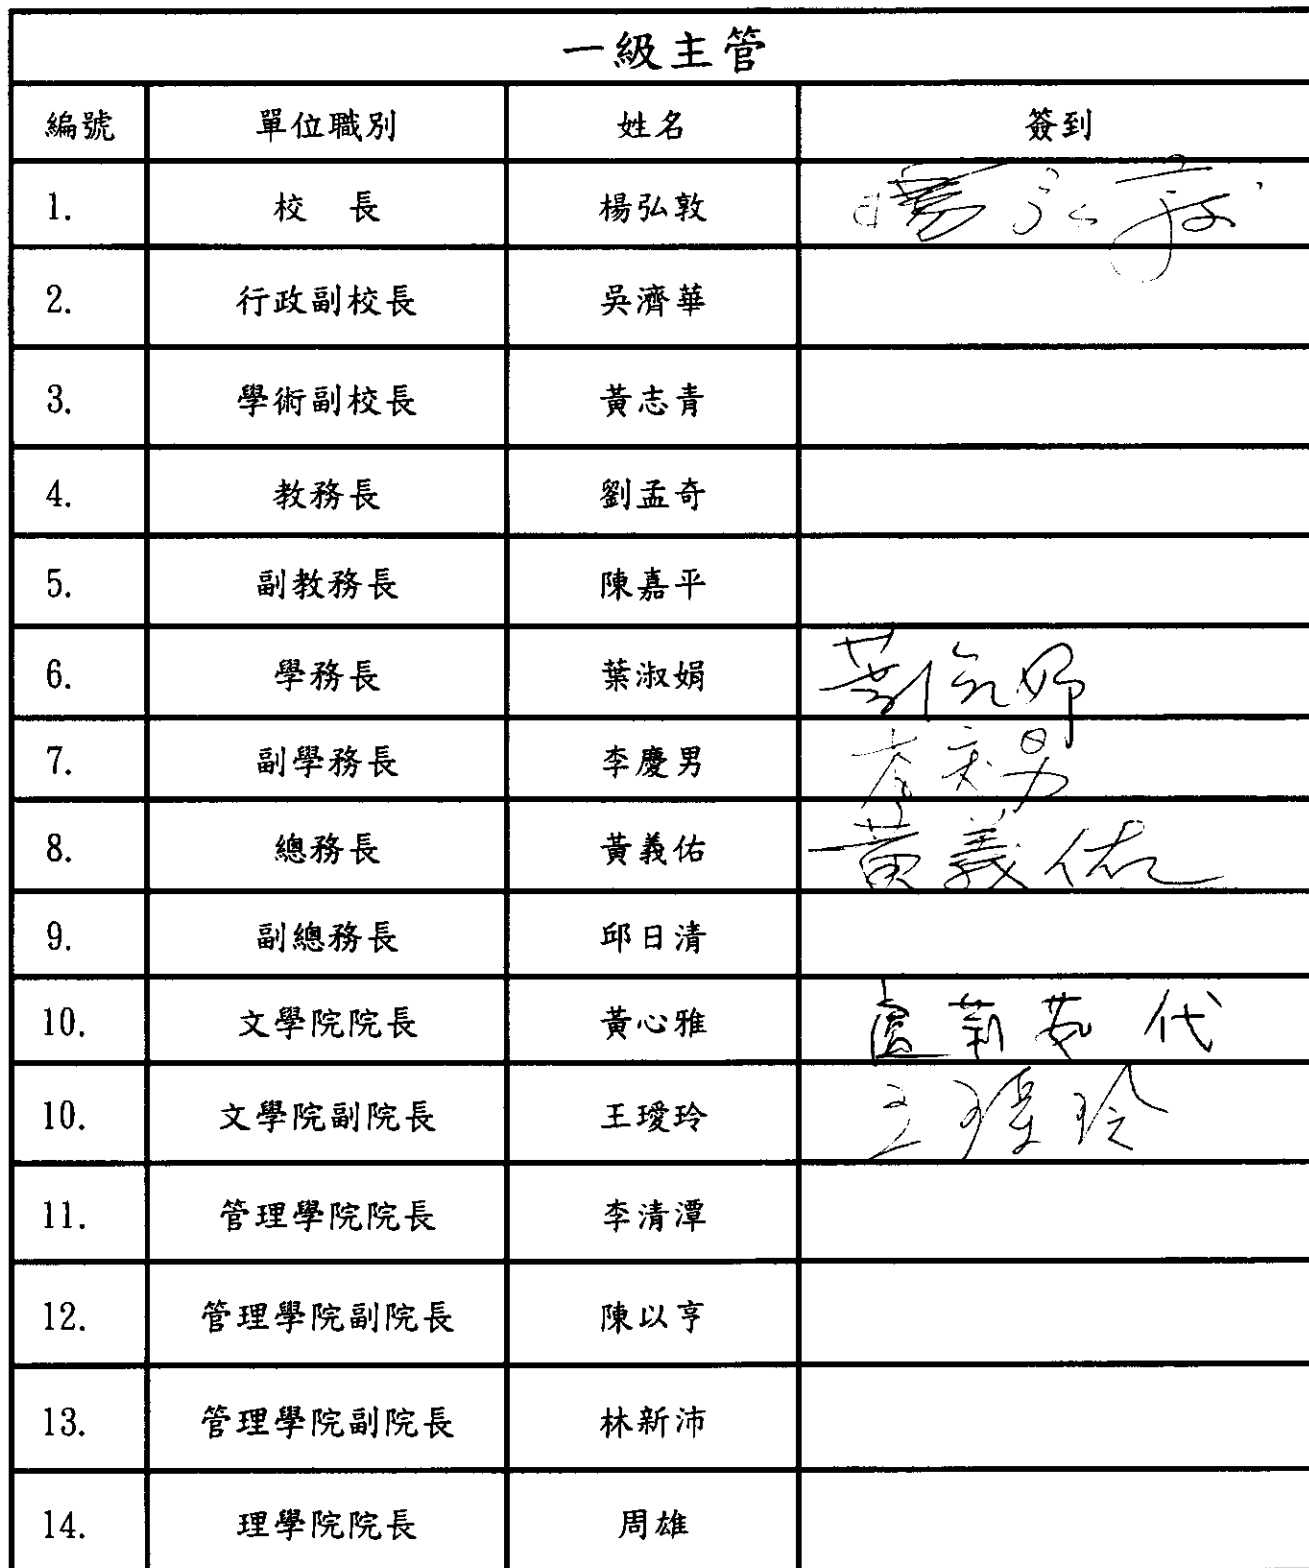 一級主管
編號 單位職別 姓名 簽到
1. 校 長 楊弘敦 楊弘敦
2. 行政副校長 吳濟華
3. 學術副校長 黃志青
4. 教務長 劉孟奇
5. 副教務長 陳嘉平
6. 學務長 葉淑娟
7. 副學務長 李慶男 李慶男
8. 總務長 黃義佑 黃義佑
9. 副總務長 邱日清
10. 文學院院長 黃心雅 代
10. 文學院副院長 王璦玲 王璦玲
11. 管理學院院長 李清潭
12. 管理學院副院長 陳以亨
13. 管理學院副院長 林新沛
14. 理學院院長 周雄